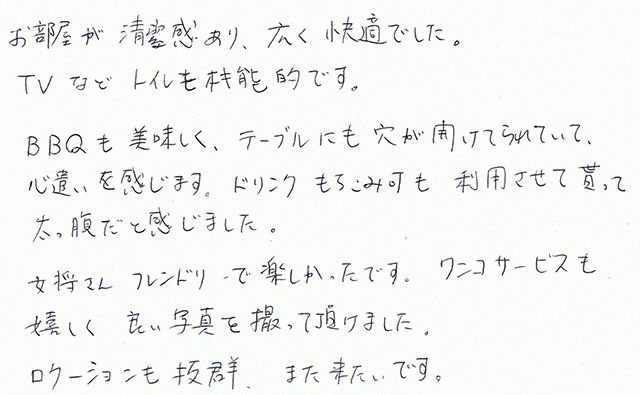 お部屋が清潔感あり、広く快適でした。
TVなどトイレも機能的です。
BBQも美味しく、テーブルにも穴が開けてられていて、
心遣いを感じます。ドリンクもちこみ可も利用させて貰って
太っ腹だと感じました。
女将さんフレンドリーで楽しかったです。ワンコサービスも
嬉しく良い写真を撮って頂けました。
ロケーションも抜群、また来たいです。